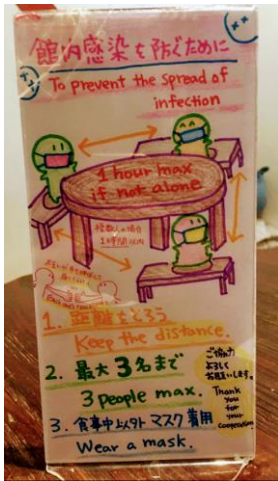 館内感染を防ぐために
To prevent the spread of
infection
1 hour max
if not alone
複数人の場合
1時間以内
1. 距離をとろう
Keep the distance.
2. 最大3名まで
3 people max.
3. 食事中以外マスク着用
Wear a mask.
ご協力
よろしく
お願いします。
Thank
you
for
your
cooperation